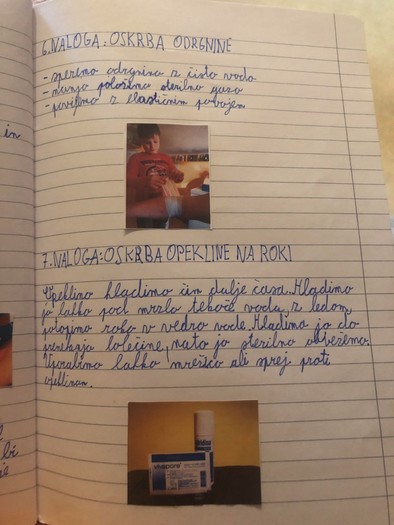 6. NALOGA: OSKRBA ODRGNINE
- speremo odrgnino z čisto vodo
- nanjo položimo sterilno gazo
- povijemo z elastičnim povojem
7. NALOGA: OSKRBA OPEKLINE NA ROKI
Opeklino hladimo čim dalje časa. Hladimo
jo lahko pod mrzlo tekočo vodo, z ledom,
potopimo roko v vedro vode. Hladimo jo do
prenehanja bolečine, nato jo sterilno obvežemo.
Uporabimo lahko mrežico ali sprej proti
opeklinam.
vivapore
in
bi